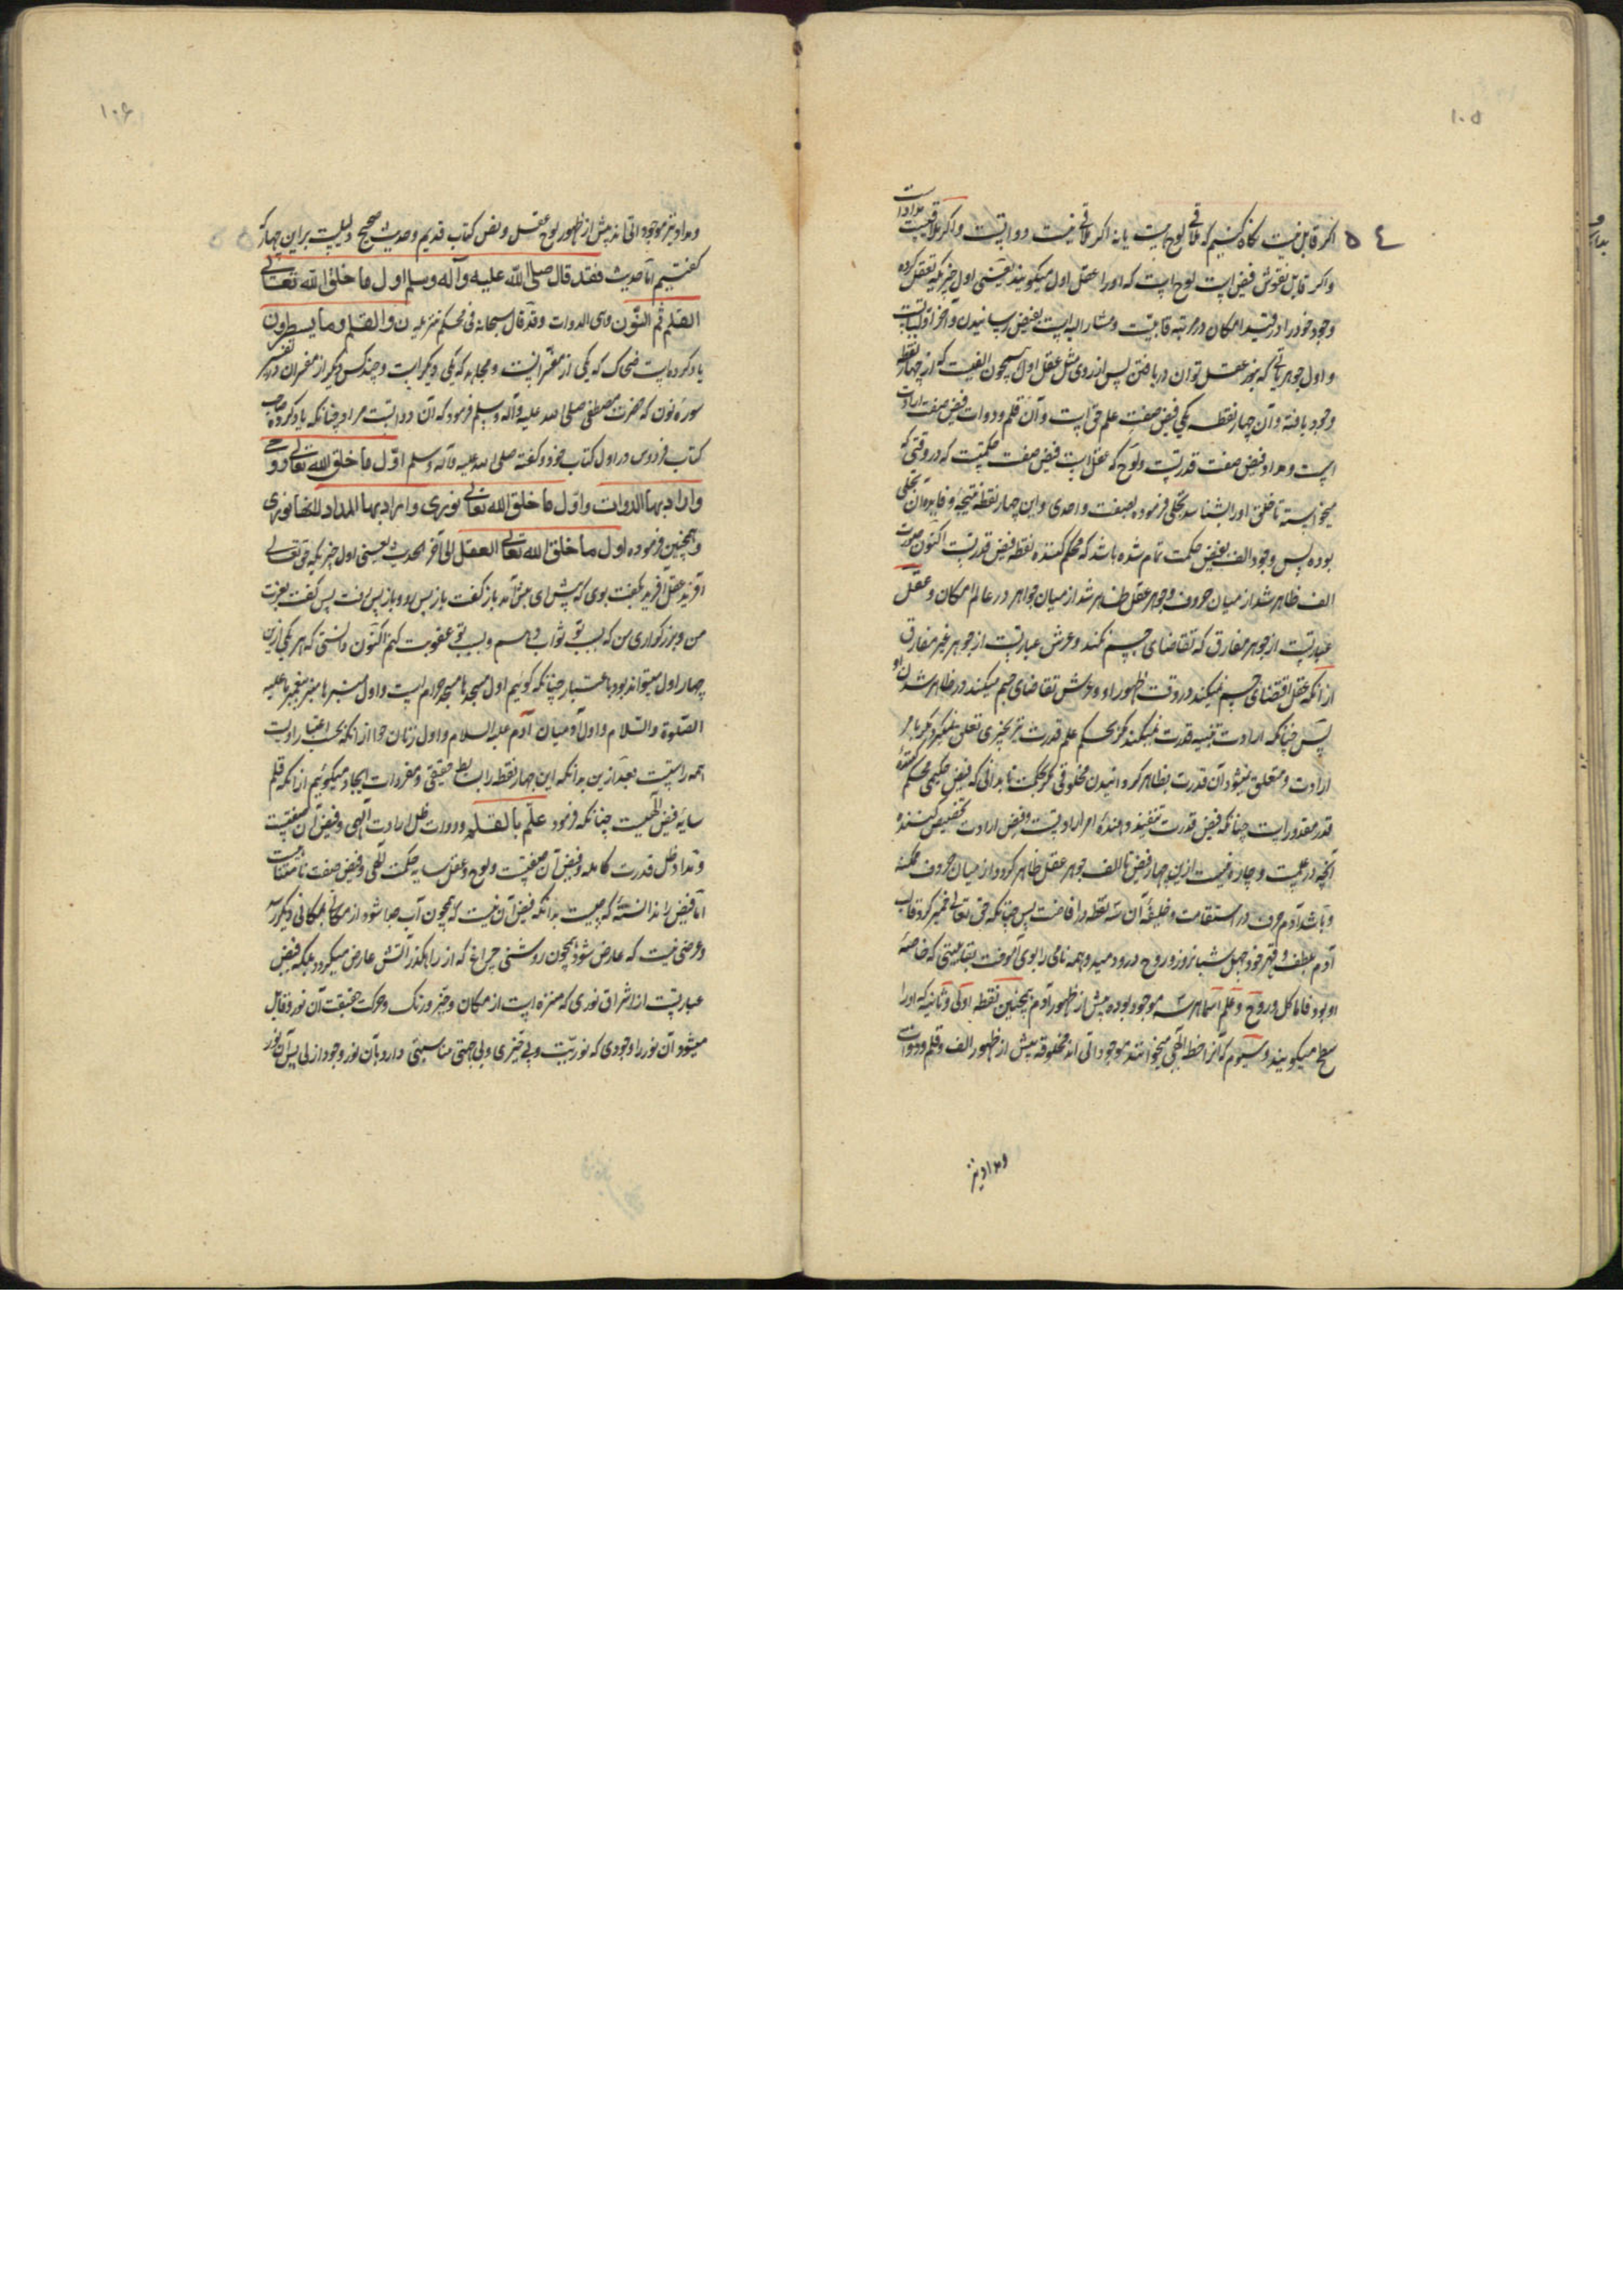 ۱۰۵
۵٤
اگر قابل نیست نگاه کنیم که ملاقی لوح هست یا نه اگر ملاقی نیست دواتست و اگر ملاقیست مدادست
و اگر قابل نقوش فیض است لوح است که او را عقل اول میگویند یعنی اول چیزیکه تعقل کرده
وجود خود را در قید امکان در مرتبه قابلیت و مشار الیه است بفیض رسانیدن و آخر اولیاتست
و اول جوهریاتی که بنور عقل توان دریافتن پس از روی مثل عقل اول همچون الفیست که از چهار نقطه
وجود یافته و آن چهار نقطه یکی فیض صفت علم حق است و آن قلم و دوات فیض صفت ارادت
است و مداد فیض صفت قدرتست و لوح که عقل است فیض صفت حکمتست که در وقتی که
میخواسته تا خلق او را شناسد تجلی فرموده بصفت واحدی و این چهار نقطه نتیجه و فایده آن تجلی
بوده پس وجود الف بفیض حکمت تمام شده باشد که محکم کننده نقطه فیض قدرتست اکنون صورت
الف ظاهر شد از میان حروف و جوهر عقل ظاهر شد از میان جواهر در عالم امکان و عقل
عبارتست از جوهر مفارق که تقاضای جسم نکند و عرش عبارتست از جوهر غیر مفارق
از آنکه عقل اقتضای جسم نمیکند در وقت ظهور او و عرش تقاضای جسم میکند در ظاهر شدن او
پس چنانکه ارادت تنبیه قدرت نمیکند مگر بحکم علم قدرت نیز بچیزی تعلق نمیگیرد مگر بامر
ارادت و متعلق نمیشود آن قدرت بظاهر گردانیدن مخلوقی مگر بحکمت تا بدانی که فیض حکیمی محکم کننده
قدر مقدورات است چنانکه فیض قدرت تنفیذ دهنده امر ارادتست و فیض ارادت تخصیص کننده
آنچه در علمست و چاره نیست ازین چهار فیض تا الف جوهر عقل ظاهر گردد از میان حروف ممکنه
و باشد آدم حروف در استقامت و خلیفه آن سه نقطه در افاضت پس چنانکه حق تعالی خمیر کرد قالب
آدم بلطف و قهر خود چهل شبانروز و روح درو دمید و همه نامی را بوی آموخت بقابلیتی که خاصه
او بود فاما گل و روح و علم اسما هر سه موجود بوده پیش از ظهور آدم همچنین نقطه اولی و ثانیه که او را
سطح میگویند و سیوم که آنرا خط الهی میخوانند موجوداتی اند مخلوقه پیش از ظهور الف و قلم و دوات
و مداد نیز
۱۰۶
۵۵
و مداد نیز موجوداتی اند پیش از ظهور لوح عقل و نص کتاب قدیم و حدیث صحیح دلیلست بر این چهار که
گفتیم اما حدیث فقد قال صلی الله علیه وآله وسلم اول ما خلق الله تعالی
القلم ثم النون وهی الدوات وقد قال سبحانه فی محکم تنزیله ن والقلم وما یسطرون
یاد کرده است ضحاک که یکی از مفسرانست و مجاهد که یکی دیگر است و چند کس دیگر از مفسران در تفسیر
سوره نون که حضرت مصطفی صلی الله علیه وآله وسلم فرمود که آن دواتست مراد چنانکه یاد کرده صاحب
کتاب فردوس در اول کتاب خود و گفته صلی الله علیه وآله وسلم اول ما خلق الله تعالی روحی
واراد بها الدوات واول ما خلق الله تعالی نوری واراد بها المداد للخفا نوری
و همچنین فرموده اول ما خلق الله تعالی العقل الی آخر الحدیث یعنی اول چیزیکه حق تعالی
آفرید عقل آفرید بگفت بوی که پیش آی پیش آمد باز گفت باز پس رو باز پس رفت پس گفت بعزت
من و بزرگواری من که بسبب تو ثواب دهم و بسبب تو عقوبت کنم اکنون دانستی که هر یکی ازین
چهار اول میتواند بود باعتبار چنانکه گوئیم اول مسجدها مسجد حرام است و اول منبرها منبر پیغمبر ما علیه
الصلوة والسلام و اول آدمیان آدم علیه السلام و اول زنان حوا از آنکه بحسب اعتبار اولیت
همه راستست بعد ازین بدانکه این چهار نقطه را بسایط حقیقی و مفردات ایجاد میگوئیم از آنکه قلم
سایه فیض الهیست چنانکه فرمود علّم بالقلم و دوات ظل ارادت الهی و فیض آن صفتست
و مداد ظل قدرت کامله و فیض آن صفتست و لوح و عقل سایه حکمت الهی و فیض صفت
اما فیض را ندانسته که چیست بدانکه فیض آن نیست که همچون آب جدا شود از مکانی بمکانی دیگر رسد
و عرضی نیست که عارض شود همچون روشنی چراغ که از راهگذر آتش عارض میگردد بلکه فیض
عبارتست از اشراق نوری که منزه است از مکان و حیز و رنگ و حرکت حقیقت آن نور و قابل
میشود آن نور را وجودی که نوریت و بی حیزی و بی جهتی مناسبتی دارد بآن نور وجود ازلی پس آن نور